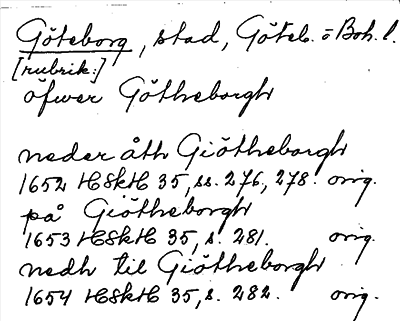 Göteborg, stad, Göteb. o Boh. l.
[rubrik:]
öfwer Götheborgh
neder åth Giötheborgh
1652 HSkH 35, ss. 276, 278. orig.
på Giötheborgh
1653 HSkH 35, s. 281. orig.
nedh til Giötheborgh
1654 HSkH 35, s. 282. orig.